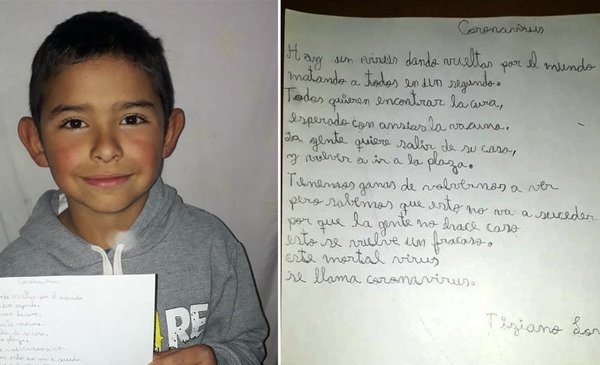 Coronavirus
Hay un virus dando vueltas por el mundo
matando a todos en un segundo.
Todos quieren encontrar la cura,
esperado con ansias la vacuna.
La gente quiere salir de su casa,
y volvir a ir a la plaza.
Tenemos ganas de volvernos a ver
pero sabemos que esto no va a suceder
por que la gente no hace caso
esto se vuelve un fracaso.
este mortal virus
se llama coronavirus.
Tiziano
Coronavirus